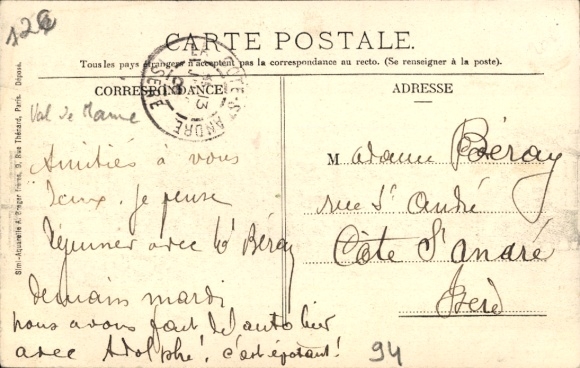 126
CARTE POSTALE.
Tous les pays étrangers n'acceptent pas la correspondance au recto. (Se renseigner à la poste).
CORRESPONDANCE
Val de Marne
Amitiés à vous
deux. je pense
déjeuner avec Mr Béray
demain mardi
nous avons fait de l'auto hier
avec Adolphe! c'est épatant!
ADRESSE
Madame Béray
rue St André
Côte St André
Isère
94
COTE-ST-ANDRE
ISERE
Simi-Aquarelle A. Breger frères, 9, Rue Thénard, Paris. Déposé.